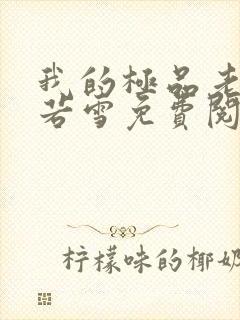 我的極品老
若雪免費閱
柠檬味的椰奶